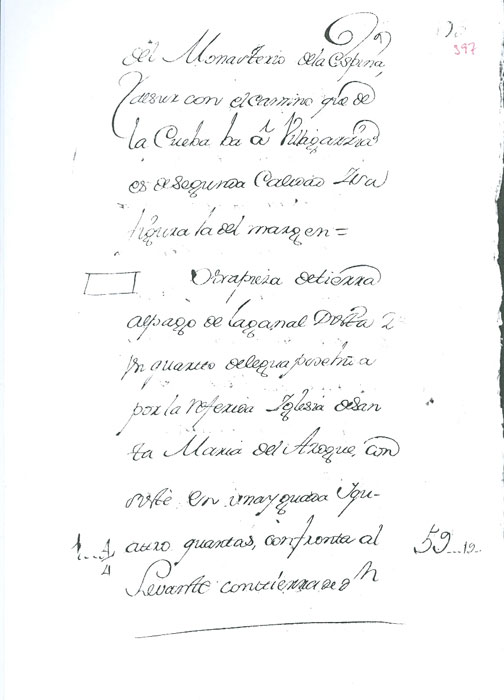 397
del Monasterio dela Espina,
y al sur con el camino que de
la Cueba ba a Villagarzia
es de segunda Calidad Y su
figura la del margen =
Otra pieza de tierra
al pago de la ganal Dista
un quarto de legua posehia
por la referida Yglesia de San
ta Maria del Azogue, con
siste en una yguada Y qu-
atro quartas, confronta al
1...4/4
59...19..
Levante con tierra de Dn